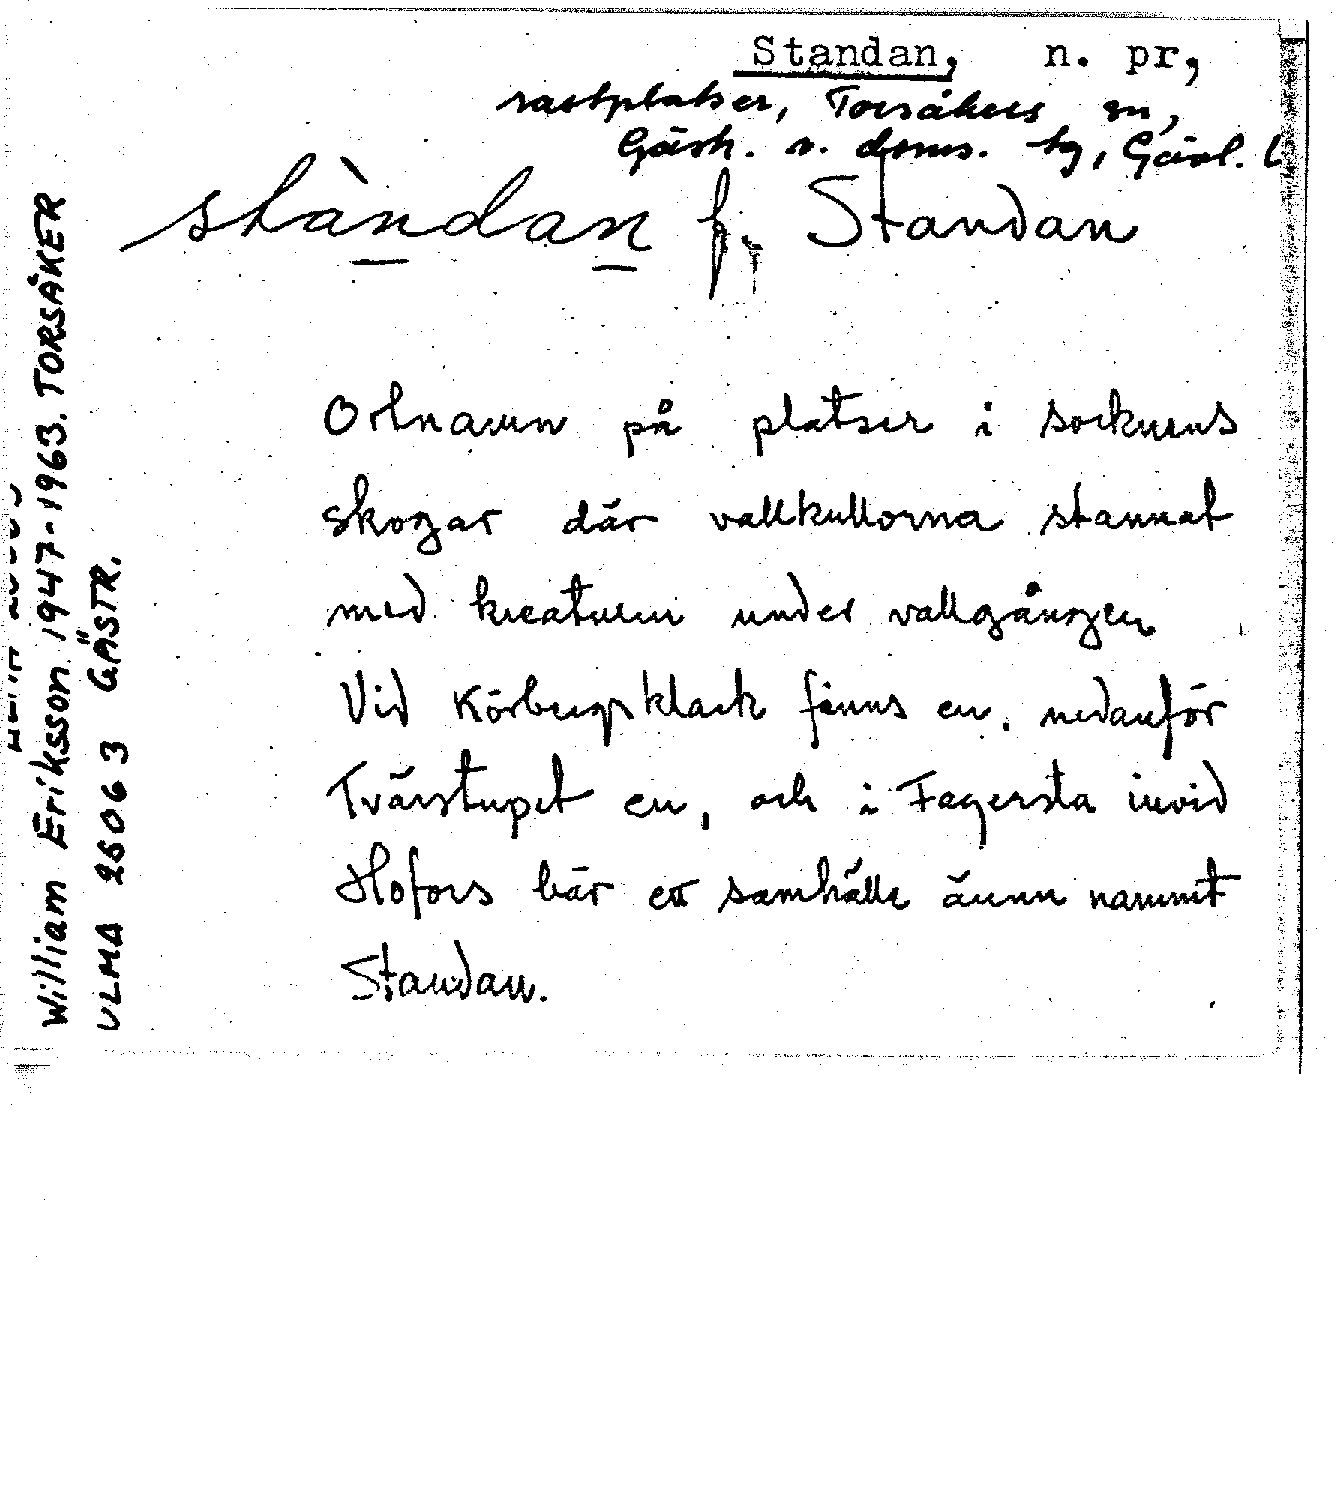 Standan, n. pr,
rastplatser, Torsåkers sn,
Gästr. ö. doms. tg, Gävl. l
stàndan f, Standan
Ortnamn på platser i socknens
skogar där vallkullorna stannat
med kreaturen under vallgången
Vid Körbergsklack finns en, nedanför
Tvärstupet en, och i Fagersta invid
Hofors bär ett samhälle ännu namnet
Standan.
William Eriksson 1947-1963. TORSÅKER
ULMA 25063 GÄSTR.